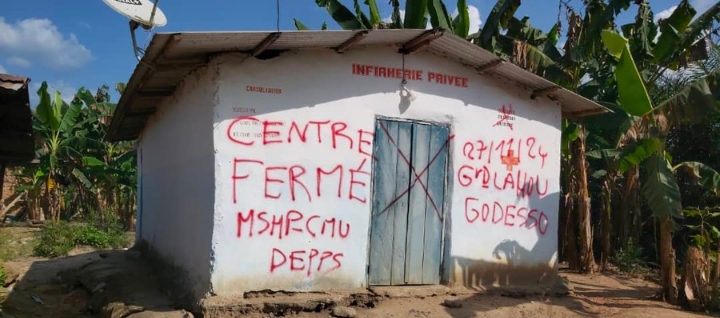 INFIRMERIE PRIVEE
CONSULTATION
CENTRE
FERMÉ
MSHP-CMU
DEPPS
27/11/24
GRD LAHOU
GODESSO